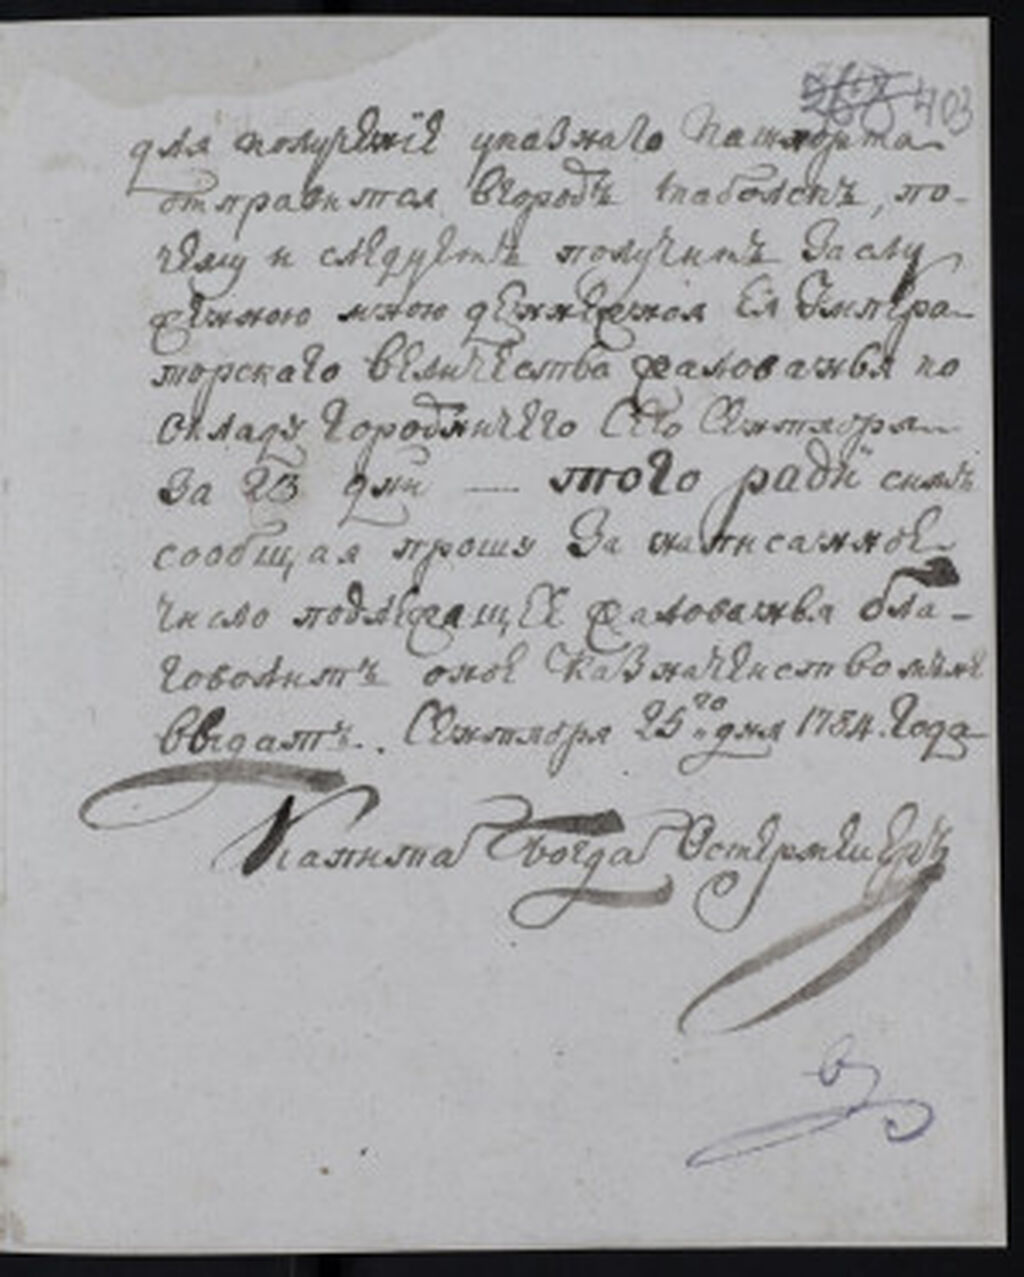 403
для полученїе указнаго пашпорта
отправился вгородъ табольскъ, по-
чему и следуетъ получить заслу
женною мною деннежная Ея Импера-
торскаго величества жалованья по
окладу городничего сего сентября
за 23 дни — того ради симъ
сообщая прошу за написанное
число подлежащее жалованья бла-
говолить оное казначеиство мне
выдать. Сентября 25го дня 1784. года